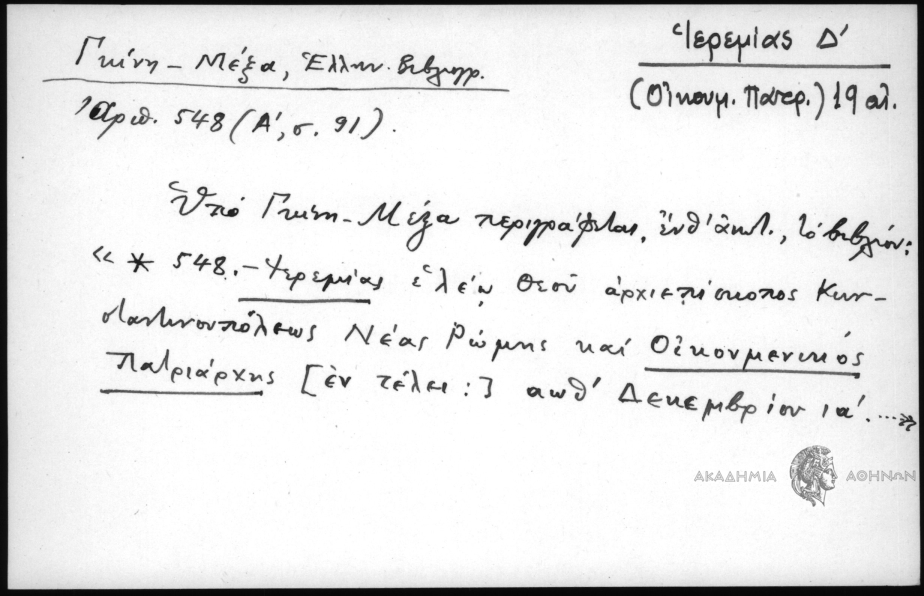 Γκίνη - Μέξα, Ἑλλην. Βιβλιογρ.
Ἀριθ. 548 (Α', σ. 91).
Ἱερεμίας Δ'
(Οἰκουμ. Πατρ.) 19 αἰ.
Ὑπό Γκίνη - Μέξα περιγράφεται, ἐνθ' ἀνωτ., τό βιβλίον:
« * 548. - Ἱερεμίας ἐλέῳ Θεοῦ ἀρχιεπίσκοπος Κων-
σταντινουπόλεως Νέας Ῥώμης καί Οἰκουμενικός
Πατριάρχης [ἐν τέλει :] αωθ' Δεκεμβρίου ια'. ....»
ΑΚΑΔΗΜΙΑ ΑΘΗΝΩΝ